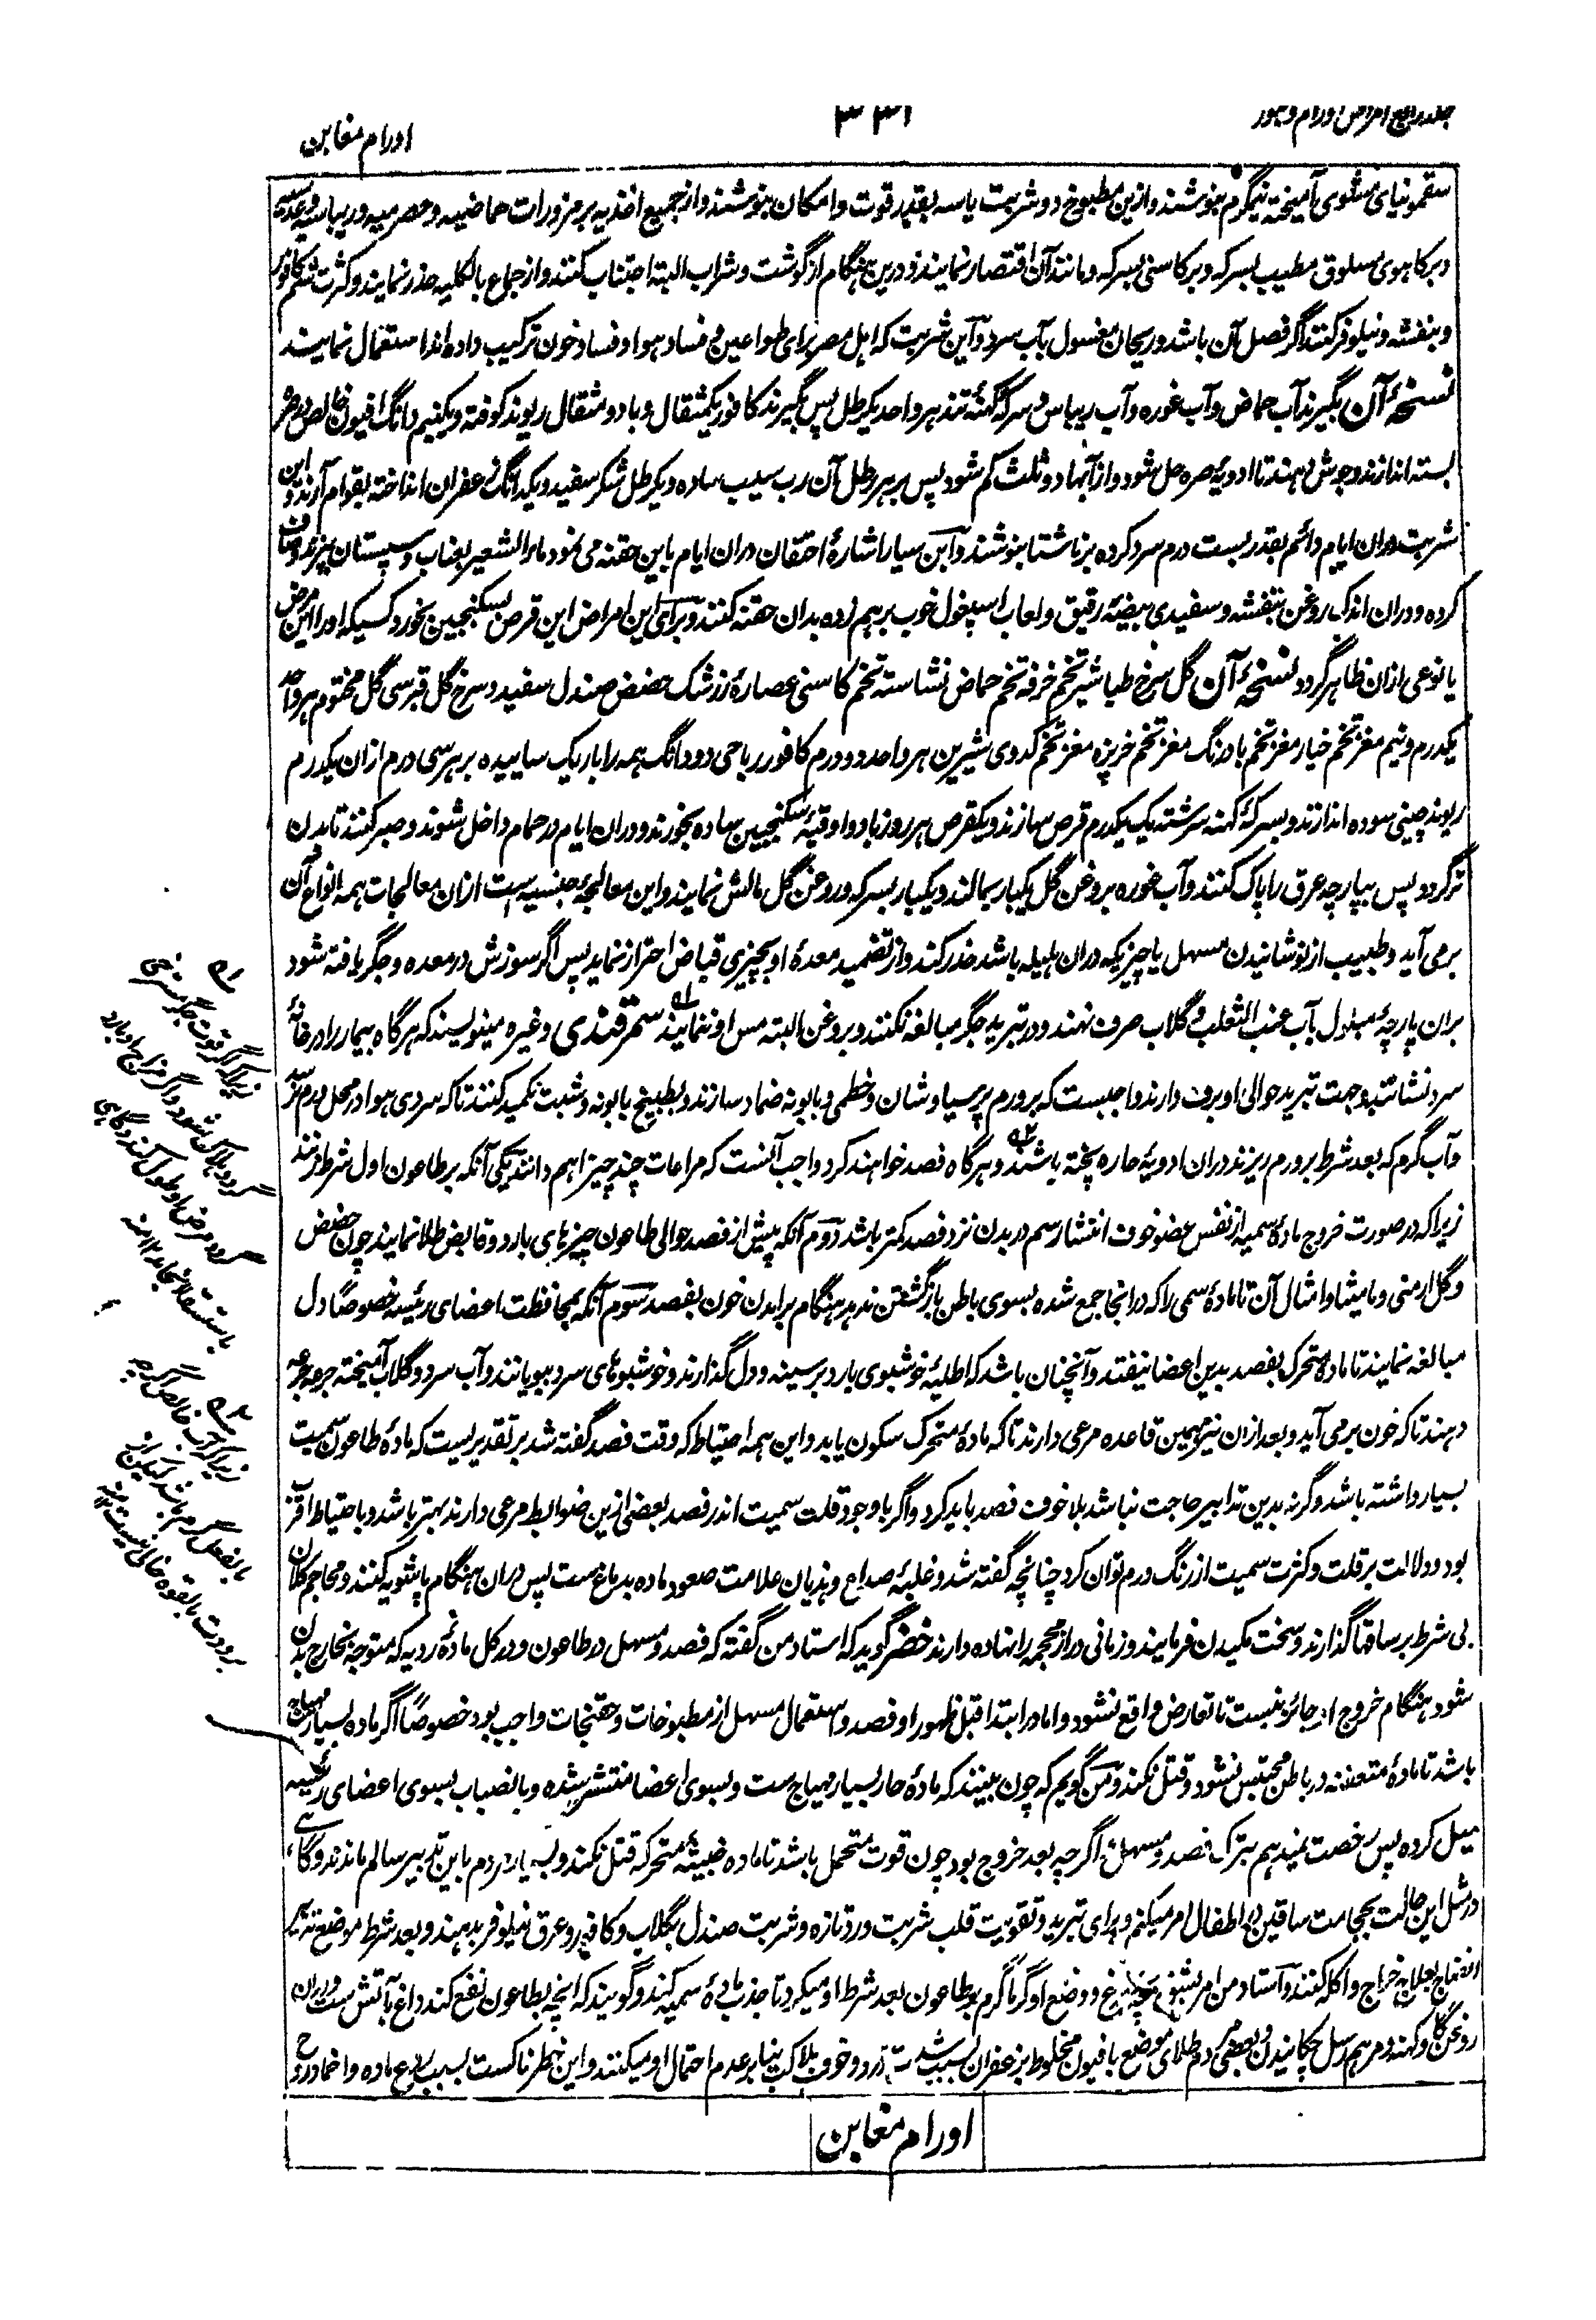 جلد رابع امراض اورام و بثور
۳۳۱
اورام مغابن
سقمونیای مشوی آمیخته نیمگرم بنوشند و ازین مطبوخ دو شربت یا سه بقدر قوت و امکان بنوشند و از جمیع اغذیه بر مزورات حماضیه و حصرمیه و ریباسیه و عدسیه
و برکاهوی مسلوق مطیب بسرکه و برکاسنی بسرکه و مانند آن اقتصار نمایند و درین هنگام از گوشت و شراب البته اجتناب کنند و از جماع بالکلیه حذر نمایند و کثرت شم کافور
و بنفشه و نیلوفر کنند اگر فصل آن باشد و ریحان مغسول بآب سرد و آین شربت که اهل مصر برای طواعین و فساد هوا و فساد خون ترکیب داده‌اند استعمال نمایند
نسخهٔ آن بگیرند آب حماض و آب غوره و آب ریباس و سرکهٔ کهنهٔ تند هر واحد یکرطل پس بگیرند کافور یکمثقال و با دو مثقال ریوند کوفته و یکنیم دانگ افیون خالص در صره
بسته اندازند و جوش دهند تا ادویهٔ صره حل شود و از آنها دو ثلث کم شود پس بر هر رطل آن رب سیب ساده و یکرطل شکر سفید و یکدانگ زعفران انداخته بقوام آرند و این
شربت دران ایام دائم بقدر بست درم سرد کرده بر ناشتا بنوشند و آبن سیار اشارهٔ احتقان دران ایام باین حقنه می نمود ماء الشعیر بعناب و سپستان پزند و صاف
کرده و دران اندک روغن بنفشه و سفیدی بیضهٔ رقیق و لعاب اسپغول خوب برهم زده بدان حقنه کنند و برای این امراض این قرص بسکنجبین بخورد کسیکه او را این مرض
یا نوعی ازان ظاهر گردد نسخهٔ آن گل سرخ طباشیر تخم خرفه تخم حماض نشاسته تخم کاسنی عصارهٔ زرشک حضض صندل سفید و سرخ گل قبرسی گل مختوم هر واحد
یکدرم و نیم مغز تخم خیار مغز تخم بادرنگ مغز تخم خرپزه مغز تخم کدوی شیرین هر واحد دو درم کافور ریاحی دو دانگ همه را باریک ساییده بر هر سی درم ازان یکدرم
ریوند چینی سوده اندازند و بسرکهٔ کهنه سرشته یک یکدرم قرص سازند و یکقرص هر روز با دو اوقیهٔ سکنجبین ساده بخورند و دران ایام در حمام داخل شوند و صبر کنند تا بدن
تر گردد پس بپارچه عرق را پاک کنند و آب غوره بروغن گل یکبار بمالند و یکبار بسرکه و روغن گل مالش نمایند و این معالجهٔ جنسیه است ازان معالجات همه انواع آن
برمی آید و طبیب از نوشانیدن مسهل یا چیزیکه دران هلیله باشد حذر کند و از تضمید معدهٔ او بچیزی قباض احتراز نماید پس اگر سوزش در معده و جگر یافته شود
بران پارچهٔ مبلول بآب عنب الثعلب و گلاب صرف نهند و در تبرید جگر مبالغه نکنند و بروغن البته مس او ننمایند سمرقندی و غیره مینویسند که هرگاه بیمار را در خانهٔ
سرد نشانند و بجهت تبرید حوالی او برف دارند واجبست که بر ورم پرسیاوشان و خطمی و بابونه ضماد سازند و بطبیخ بابونه و شبت تکمید کنند تا که سردی هوا در محل ورم نرسد
و آب گرم که بعد شرط بر ورم ریزند دران ادویهٔ حاره پخته باشند و هرگاه فصد خواهند کرد واجب آنست که مراعات چند چیز اهم دانند یکی آنکه بر طاعون اول شرط زنند
زیرا که در صورت خروج مادهٔ سمیه از نفس عضو خوف انتشار سم در بدن نزد فصد کمتر باشد دوم آنکه پیش از فصد حوالی طاعون چیزهای بارد و قابض طلا نمایند چون حضض
و گل ارمنی و مامیثا و امثال آن تا مادهٔ سمی را که در انجا جمع شده بسوی باطن بازگشتن ندهد هنگام برآمدن خون بفصد سوم آنکه بمحافظت اعضای رئیسه خصوصاً دل
مبالغه نمایند تا مادهٔ متحرک بفصد بدین اعضا نیفتد و آنچنان باشد که اطلیهٔ خوشبوی بارد بر سینه و دل گذارند و خوشبوهای سرد ببویانند و آب سرد و گلاب آمیخته جرعه جرعه
دهند تا که خون برمی آید و بعد ازان نیز همین قاعده مرعی دارند تا که مادهٔ متحرک سکون یابد و این همه احتیاط که وقت فصد گفته شد بر تقدیریست که مادهٔ طاعون سمیت
بسیار داشته باشد و گرنه بدین تدابیر حاجت نباشد بلا خوف فصد باید کرد و اگر با وجود قلت سمیت اندر فصد بعضی ازین ضوابط مرعی دارند بهتر باشد و باحتیاط اقرب
بود و دلالت بر قلت و کثرت سمیت از رنگ ورم توان کرد چنانچه گفته شد و غلبهٔ صداع و هذیان علامت صعود ماده بدماغ ست پس دران هنگام پاشویه کنند و محاجم کلان
بی شرط بر ساقها گذارند و سخت مکیدن فرمایند و زمانی دراز محجمه را نهاده دارند خضر گوید که استاد من گفته که فصد و مسهل در طاعون و در کل مادهٔ ردیه که متوجه بخارج بدن
شود هنگام خروج او جائز نیست تا تعارض واقع نشود و اما در ابتدا قبل ظهور او فصد و استعمال مسهل از مطبوخات و حقنجات واجب بود خصوصاً اگر ماده بسیار مهیاج
باشد تا مادهٔ متعفنه در باطن محتبس نشود و قتل نکند و من گویم که چون بینند که مادهٔ حار بسیار مهیاج ست و بسوی اعضا منتشر شده و بانصباب بسوی اعضای رئیسه
میل کرده پس رخصت نمیدهم بترک فصد و مسهل اگرچه بعد خروج بود چون قوت متحمل باشد تا ماده خبیثه متحرکه قتل نکند و بسیار مردم باین تدبیر سالم ماندند و گاهی
در مثل این حالت بحجامت ساقین در اطفال امر میکنم و برای تبرید و تقویت قلب شربت ورد تازه و شربت صندل بگلاب و کافور و عرق نیلوفر بدهند و بعد شرط موضع
انفتاح بعلاج خراج و اکله کنند و آستاد من امر بشق و وضع او گرماگرم بر طاعون بعد شرط او میکرد تا جذب مادهٔ سمیه کند و گویند که آنچه بطاعون نفع کند داغ بآتش ست و دران
روغن گل و کهنه و مرهم رسل چکانیدن و بعضی طلای موضع بافیون مخلوط بزعفران بسبب شدت درد و خوف هلاکت بنابر عدم احتمال او میکنند و این خطرناکست بسبب ردع ماده و اخماد روح
اورام مغابن